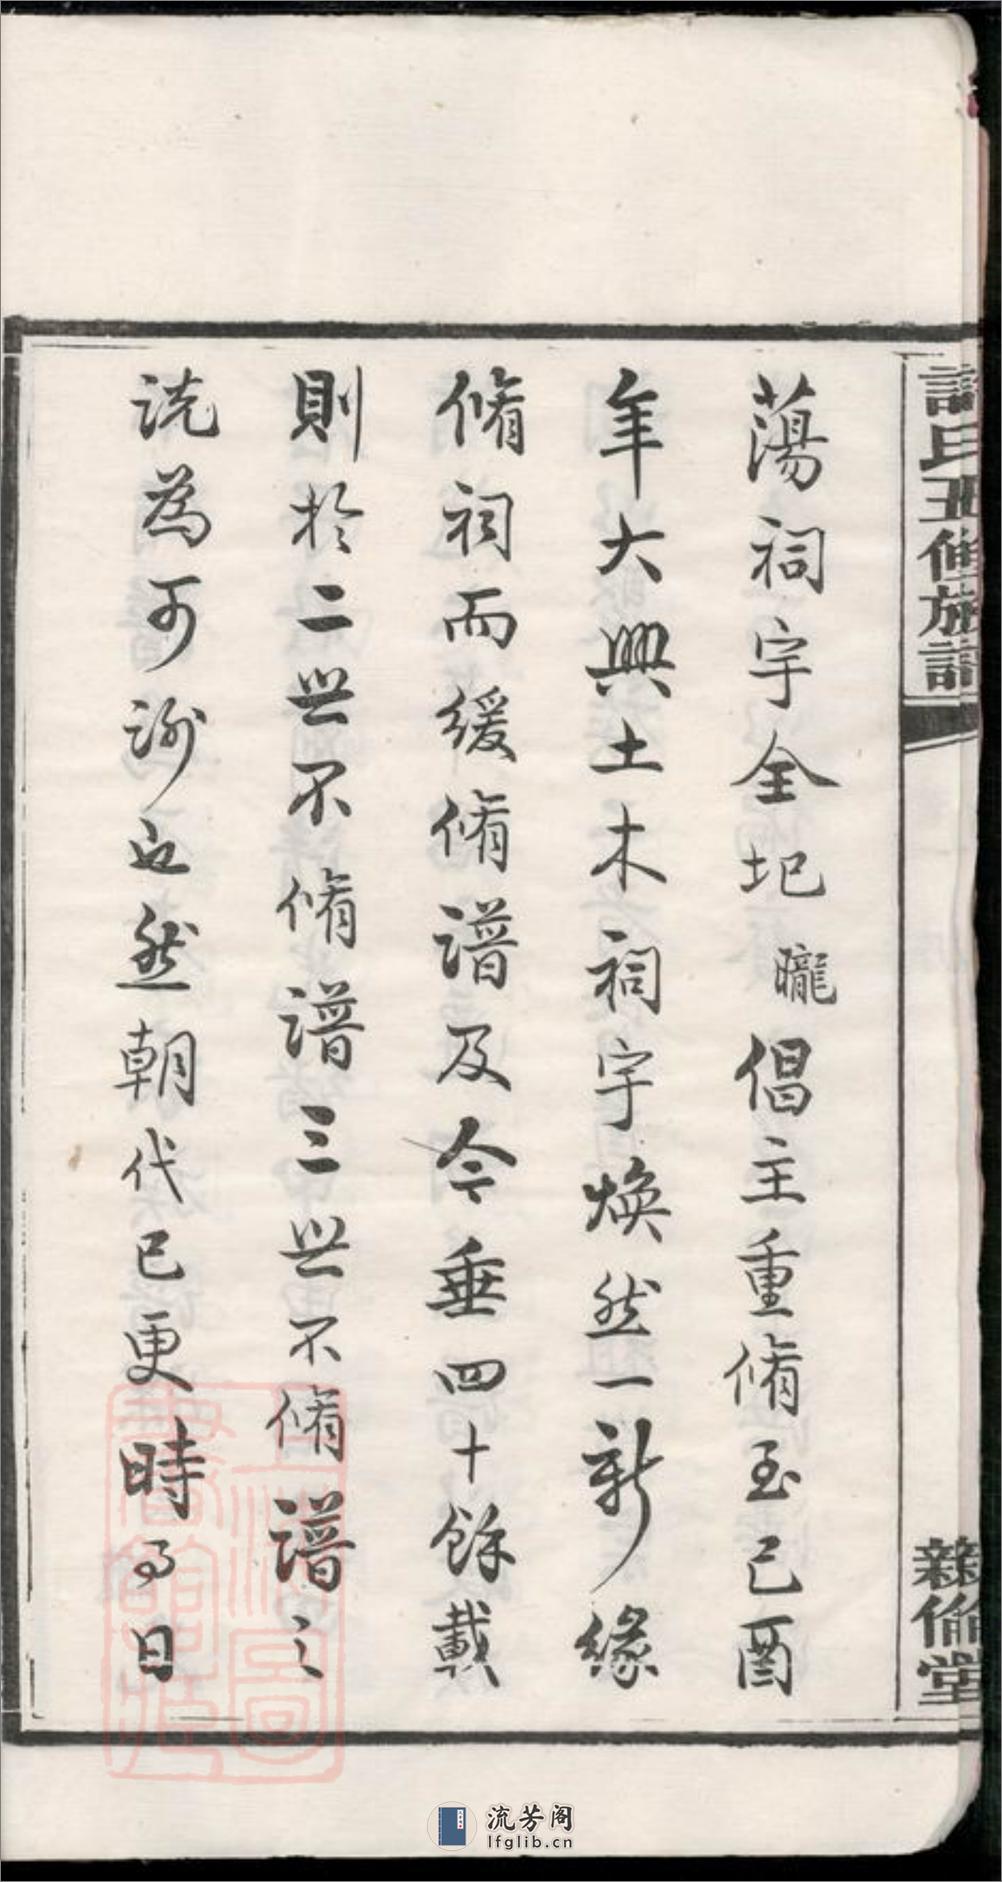 氏五修族譜
倫堂
蕩祠宇全圮曨倡主重脩至己酉
年大興土木祠宇煥然一新緣
脩祠而緩脩譜及今垂四十餘載
則於二世不脩譜三世不脩譜之
説為可也然朝代已更時事日
上海圖書館藏
流芳阁
lfglib.cn